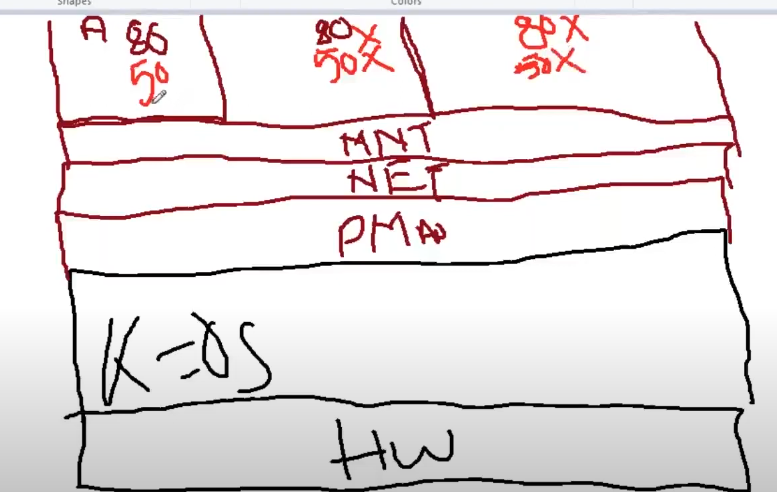 Shapes
Colors
A 80
80X
80X
50
50X
50X
MNT
NET
PMAP
K=OS
HW